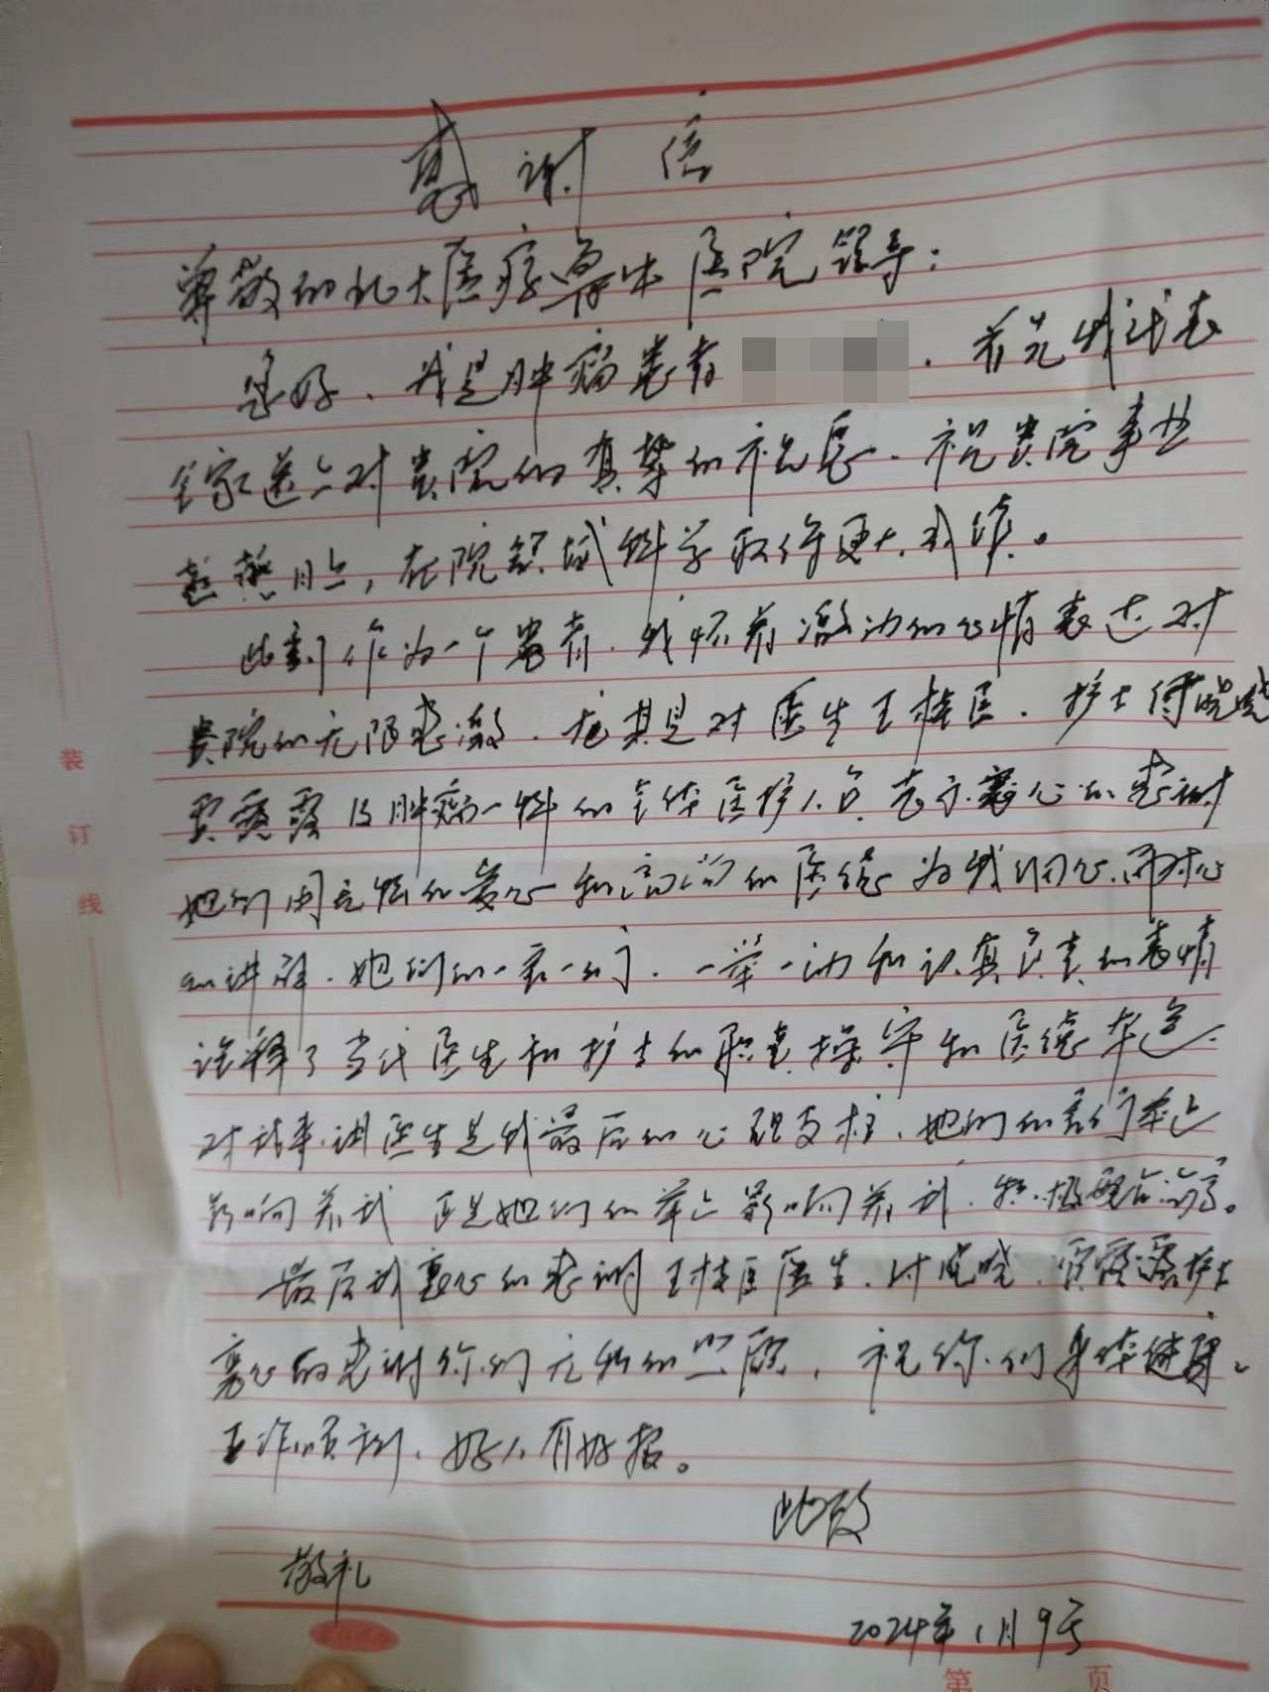 感谢信
尊敬的北大医疗鲁中医院领导：
您好、我是肿瘤患者 . 首先我代表
全家送上对贵院的真挚的祝愿. 祝贵院事业
蒸蒸日上，在院领域科学取得更大成绩。
此刻作为一个患者. 我怀着激动的心情表达对
贵院的无限感激. 尤其是对医生王桂医. 护士付晓晓
贾露露及肿瘤一科的全体医护人员表示衷心的感谢
她们用无私的爱心和高尚的医德为我们问心.
的讲解. 她们的一言一行. 一举一动和认真负责的表情
诠释了当代医生和护士的职责操守和医德本色.
对我来讲医生是我最后的心理支柱. 她们的言行举止
影响着我 正是她们的举止影响着我. 积极配合治疗。
最后我衷心的感谢王桂医医生. 付晓晓. 贾露露护士
衷心的感谢你们无私的照顾，祝你们身体健康、
工作顺利、好人有好报。
此致
敬礼
2024年1月9号
装
订
线
第 页